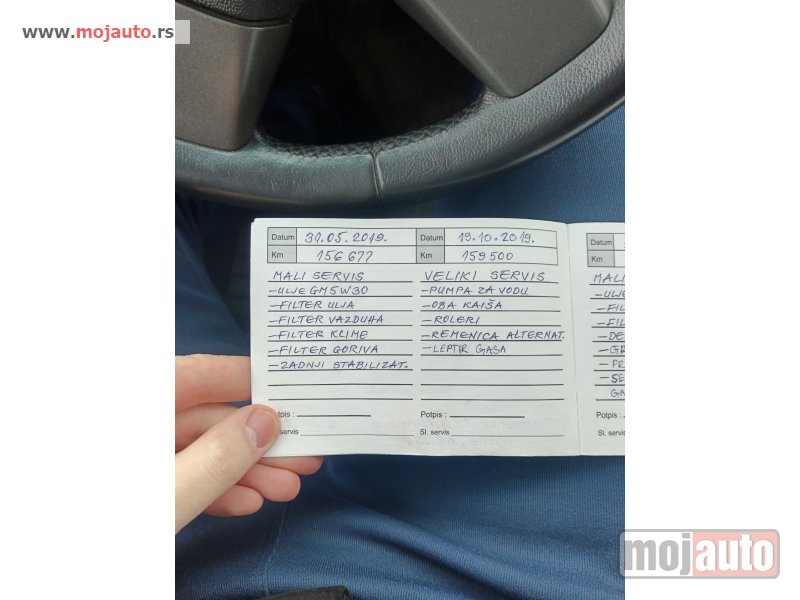 www.mojauto.rs
Datum 31.05.2019.
Km 156677
MALI SERVIS
-ULJE GM5W30
-FILTER ULJA
-FILTER VAZDUHA
-FILTER KLIME
-FILTER GORIVA
-ZADNJI STABILIZAT.
Potpis :
servis
Datum 19.10.2019.
Km 159500
VELIKI SERVIS
-PUMPA ZA VODU
-OBA KAIŠA
-ROLERI
-REMENICA ALTERNAT.
-LEPTIR GASA
Potpis :
Sl. servis
Datum
Km
MALI
-ULJE
-FIL
-FIL
-DE
-GR
-PR
-SE
GA
Potpis :
Sl. servis
mojauto